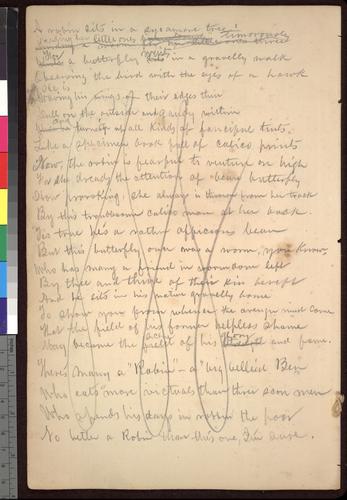 A robin sits in a sycamore tree
her little ones timorously
While a butterfly sits in a gravelly walk
Observing the bird with the eyes of a hawk
his wings of their edges thin
Dull on the outside and gaudy within
turns at all kinds of fanciful tints
Like a specimen book full of calico prints
Now, the robin is fearful to venture on high
For she dreads the attention of being butterfly
How provoking, she always is thrown from her track
By this troublesome calico man at her back.
Tis true he's a rather officious beau
But this butterfly once was a worm, you know,
Who has many a friend in wormdom left
By three and thrice of their kin bereft
And he sits in his native gravelly home
To show you from whence the avenger must come
That the field of his former helpless shame
May become the field of his and fame.
There's many a "Robin" - a "big bellied Ben
Who eats more victuals than three score men
Who spends his days in the poor
No better a Robin than this one, I'm sure.